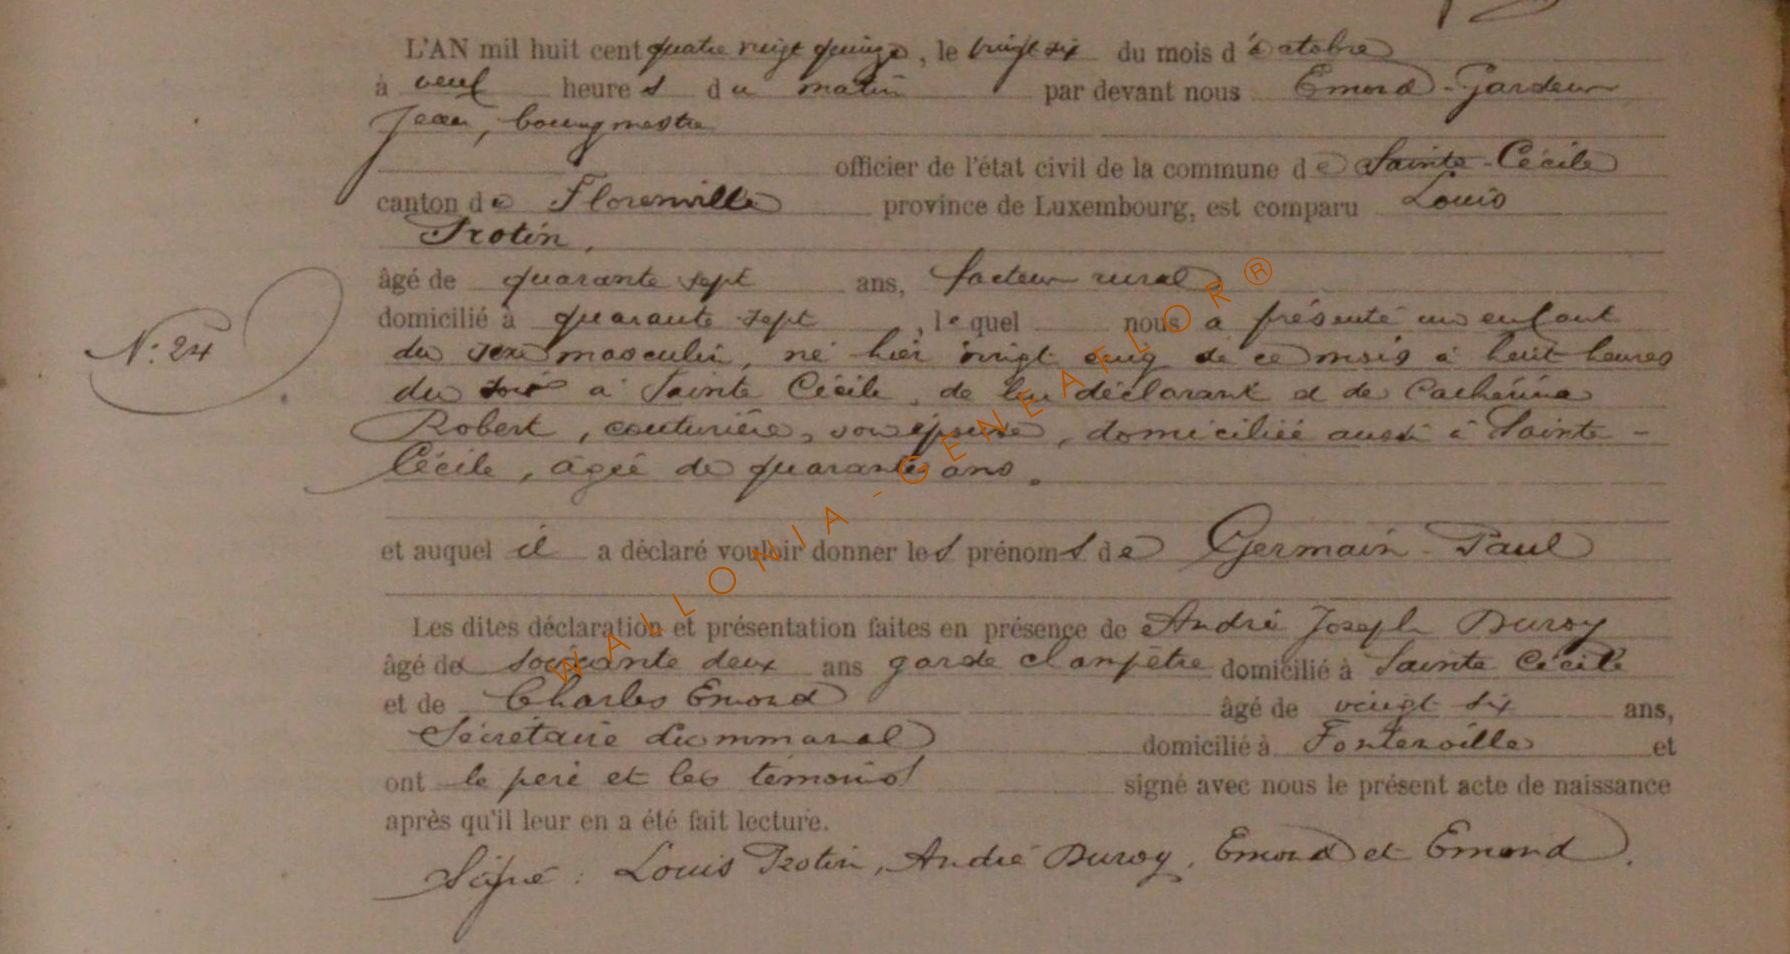 L'AN mil huit cent quatre vingt quinze, le vingt six du mois d'octobre
à neuf heures du matin par devant nous Emond-Gardeur
Jean, bourgmestre
officier de l'état civil de la commune de Sainte-Cécile
canton de Florenville province de Luxembourg, est comparu Louis
Trotin,
âgé de quarante sept ans, facteur rural
domicilié à quarante sept, lequel nous a présenté un enfant
N: 24
du sexe masculin, né hier vingt cinq de ce mois à huit heures
du soir à Sainte Cécile, de lui déclarant et de Catherine
Robert, couturière, son épouse, domiciliée aussi à Sainte-
Cécile, âgée de quarante ans.
et auquel il a déclaré vouloir donner les prénoms de Germain-Paul
Les dites déclaration et présentation faites en présence de André Joseph Duroy
âgé de soixante deux ans garde champêtre domicilié à Sainte Cécile
et de Charles Emond âgé de vingt six ans,
Secrétaire Communal domicilié à Fontenoille et
ont le père et les témoins signé avec nous le présent acte de naissance
après qu'il leur en a été fait lecture.
Signé: Louis Trotin, André Duroy, Emond et Emond.
WALLONIA-GENEAFLOR®